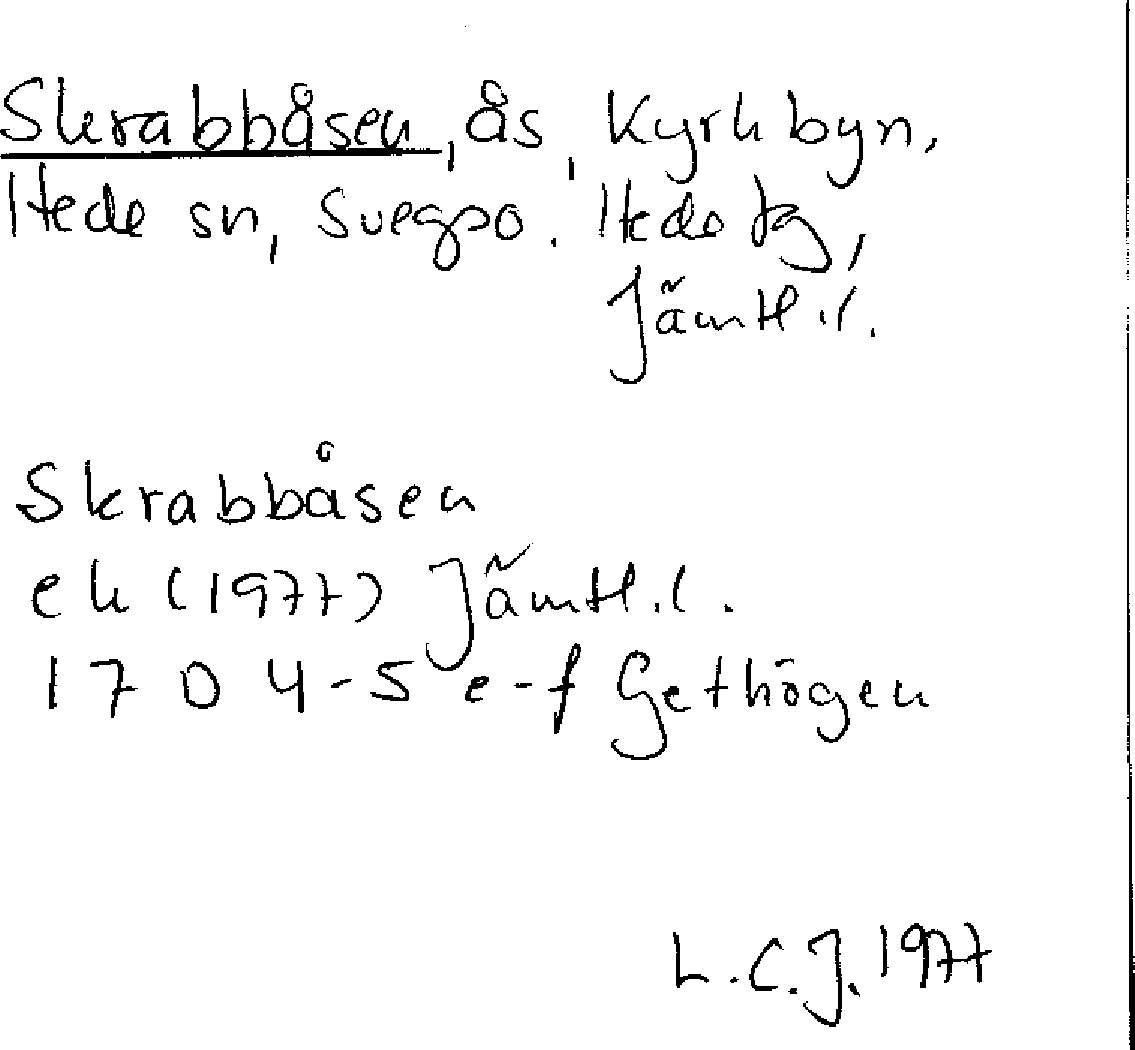 Skrabbåsen, ås, Kyrkbyn,
Hede sn, Svegpo. Hede tg,
Jämtl. l.
Skrabbåsen
ek (1977) Jämtl. l.
1704-5 e-f Gethögen
L.C.J. 1977